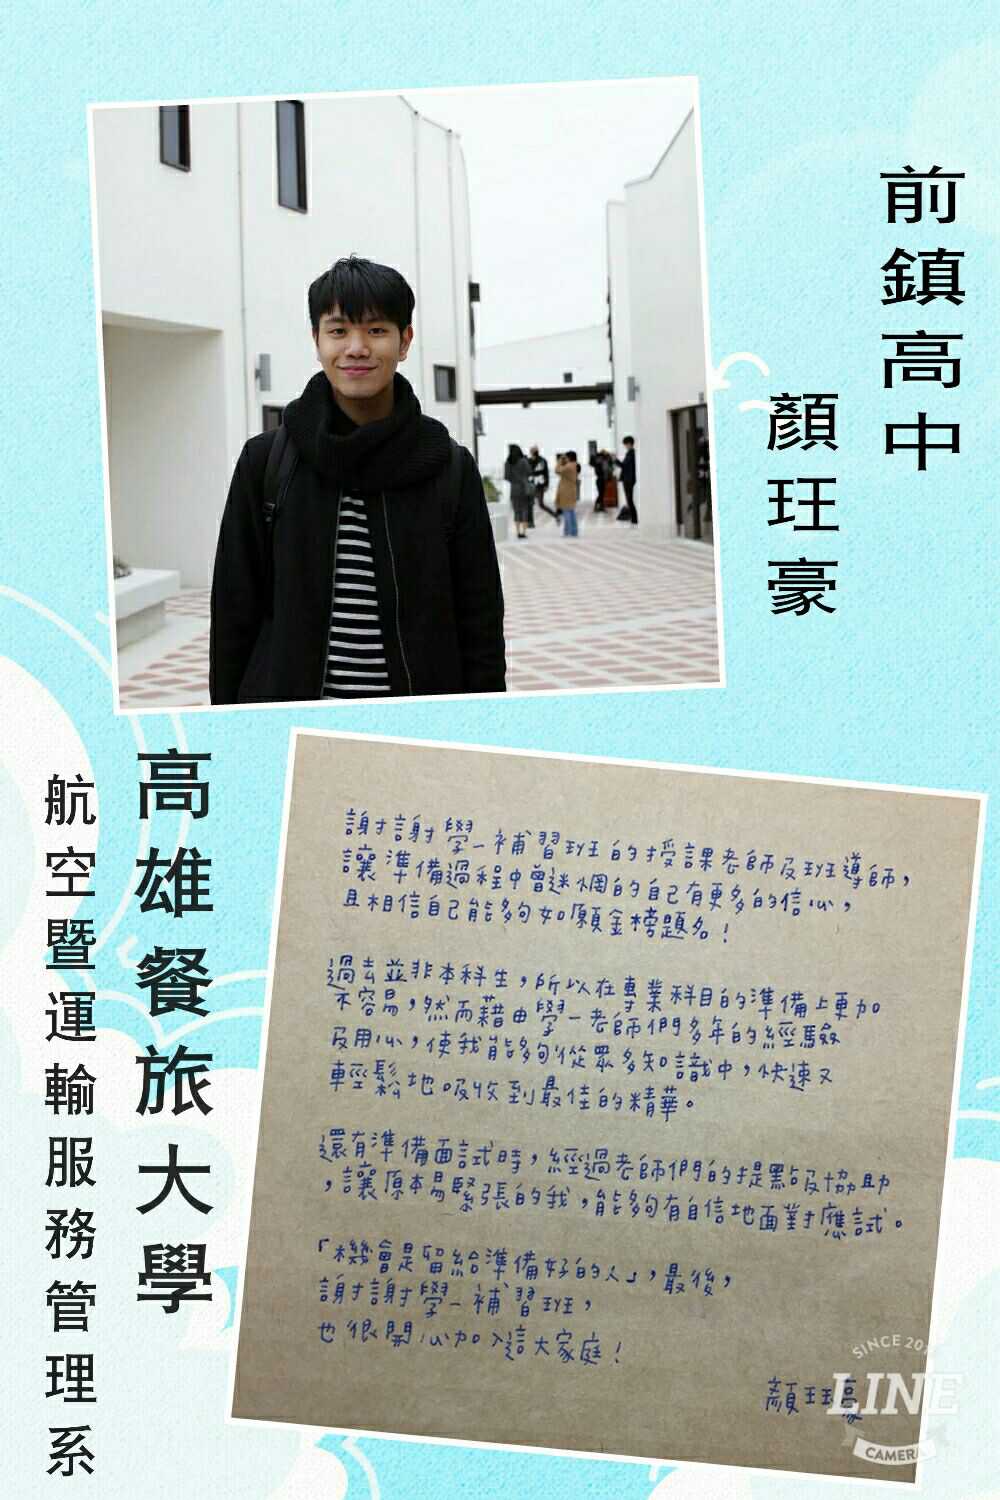 前鎮高中
顏玨豪
高雄餐旅大學
航空暨運輸服務管理系
謝謝學一補習班的授課老師及班導師，
讓準備過程中曾迷惘的自己有更多的信心，
且相信自己能夠如願金榜題名！
過去並非本科生，所以在專業科目的準備上更加
不容易，然而藉由學一老師們多年的經驗
及用心，使我能夠從眾多知識中，快速又
輕鬆地吸收到最佳的精華。
還有準備面試時，經過老師們的提點及協助
，讓原本易緊張的我，能夠有自信地面對應試。
「機會是留給準備好的人」，最後，
謝謝學一補習班，
也很開心加入這大家庭！
顏玨豪
SINCE 20
LINE
CAMERA